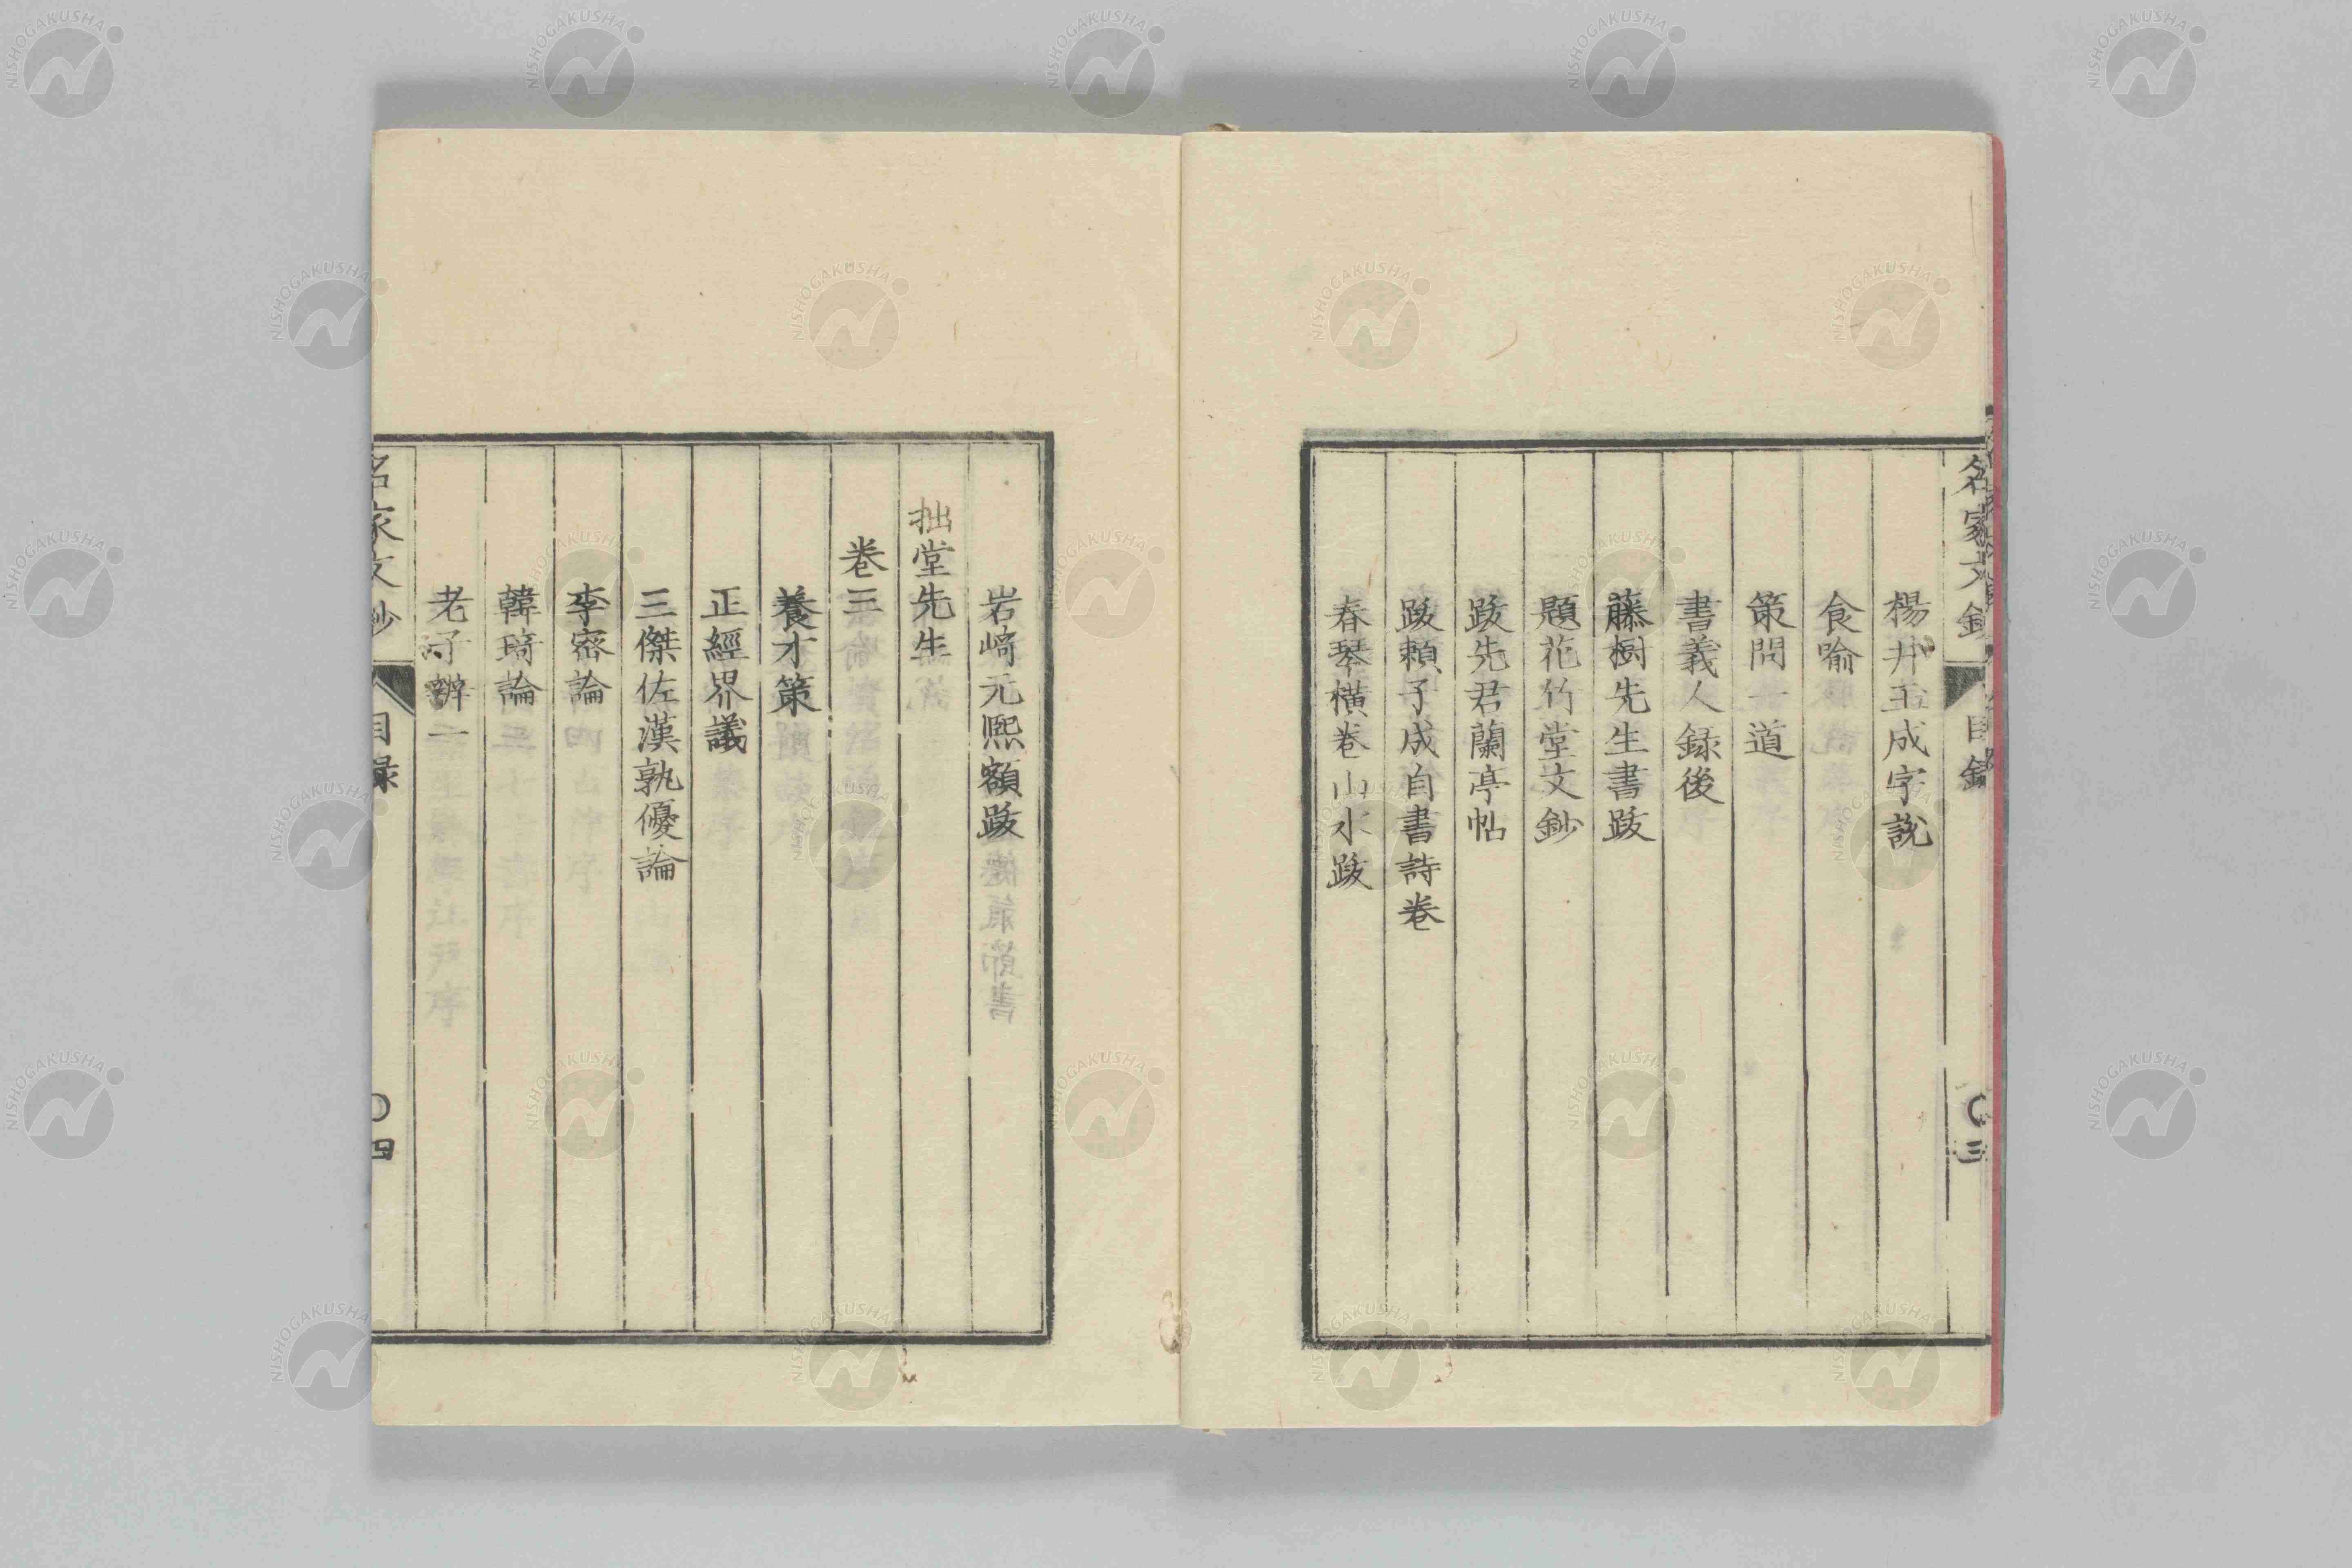 名家文鈔
目錄
〇三
楊井玉成字說
食喻
策問一道
書義人録後
藤樹先生書跋
題花竹堂文鈔
跋先君蘭亭帖
跋頼子成自書詩卷
春琴横卷山水跋
岩﨑元熙額跋
拙堂先生
卷三
養才策
正經界議
三傑佐漢孰優論
李密論
韓琦論
老子辨一
名家文鈔
目録
〇四
NISHOGAKUSHA